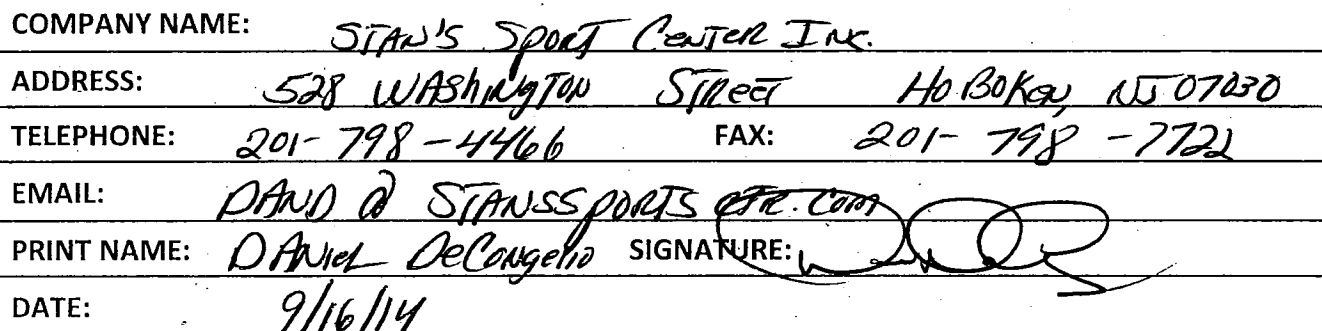 COMPANY NAME: STAN'S SPORT CENTER INC.
ADDRESS: 528 WASHINGTON STREET HOBOKEN, NJ 07030
TELEPHONE: 201-798-4466 FAX: 201-798-7722
EMAIL: DAND @ STANSSPORTSCTR.COM
PRINT NAME: DANIEL DeCongelio SIGNATURE:
DATE: 9/16/14